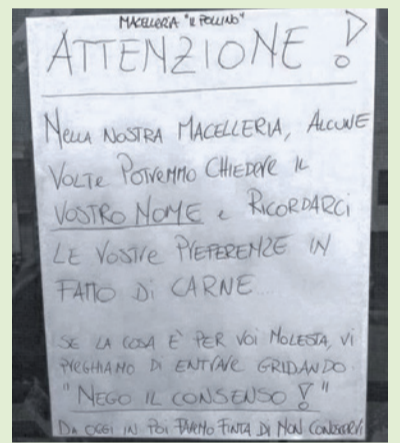 MACELLERIA "IL POLLINO"
ATTENZIONE!
NELLA NOSTRA MACELLERIA, ALCUNE
VOLTE POTREMMO CHIEDERE IL
VOSTRO NOME E RICORDARCI
LE VOSTRE PREFERENZE IN
FATTO DI CARNE...
SE LA COSA È PER VOI MOLESTA, VI
PREGHIAMO DI ENTRARE GRIDANDO
"NEGO IL CONSENSO!"
DA OGGI IN POI FAREMO FINTA DI NON CONOSCERVI